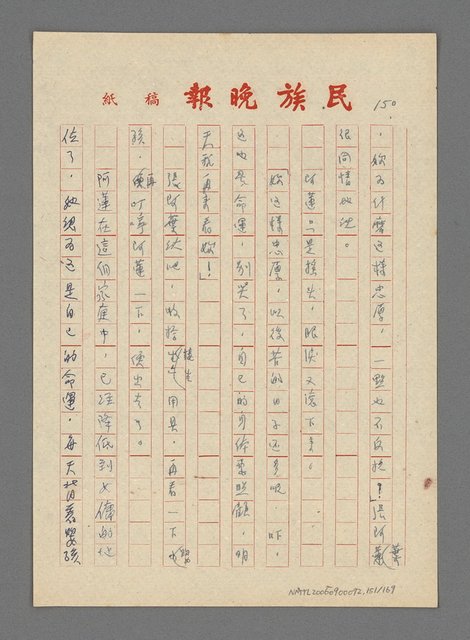 民族晚報 稿紙
150
,妳為什麼這樣忠厚,一點也不反抗?張阿葉
很同情她說。
阿蓮只是搖头,眼淚又滾下來。
妳這樣忠厚,以後苦的日子还多呢,吓,
这也是命運,別哭了,自己的身体要照顧,明
天我再來看妳!」
張阿葉說吧,收拾接生用具,再看一下
孩,再叮嚀阿蓮一下,便出去了。
阿蓮在這個家庭中,已經降低到女傭的地
位了,她認為这是自己的命運,每天背著嬰孩
NMTL20050900092.151/169